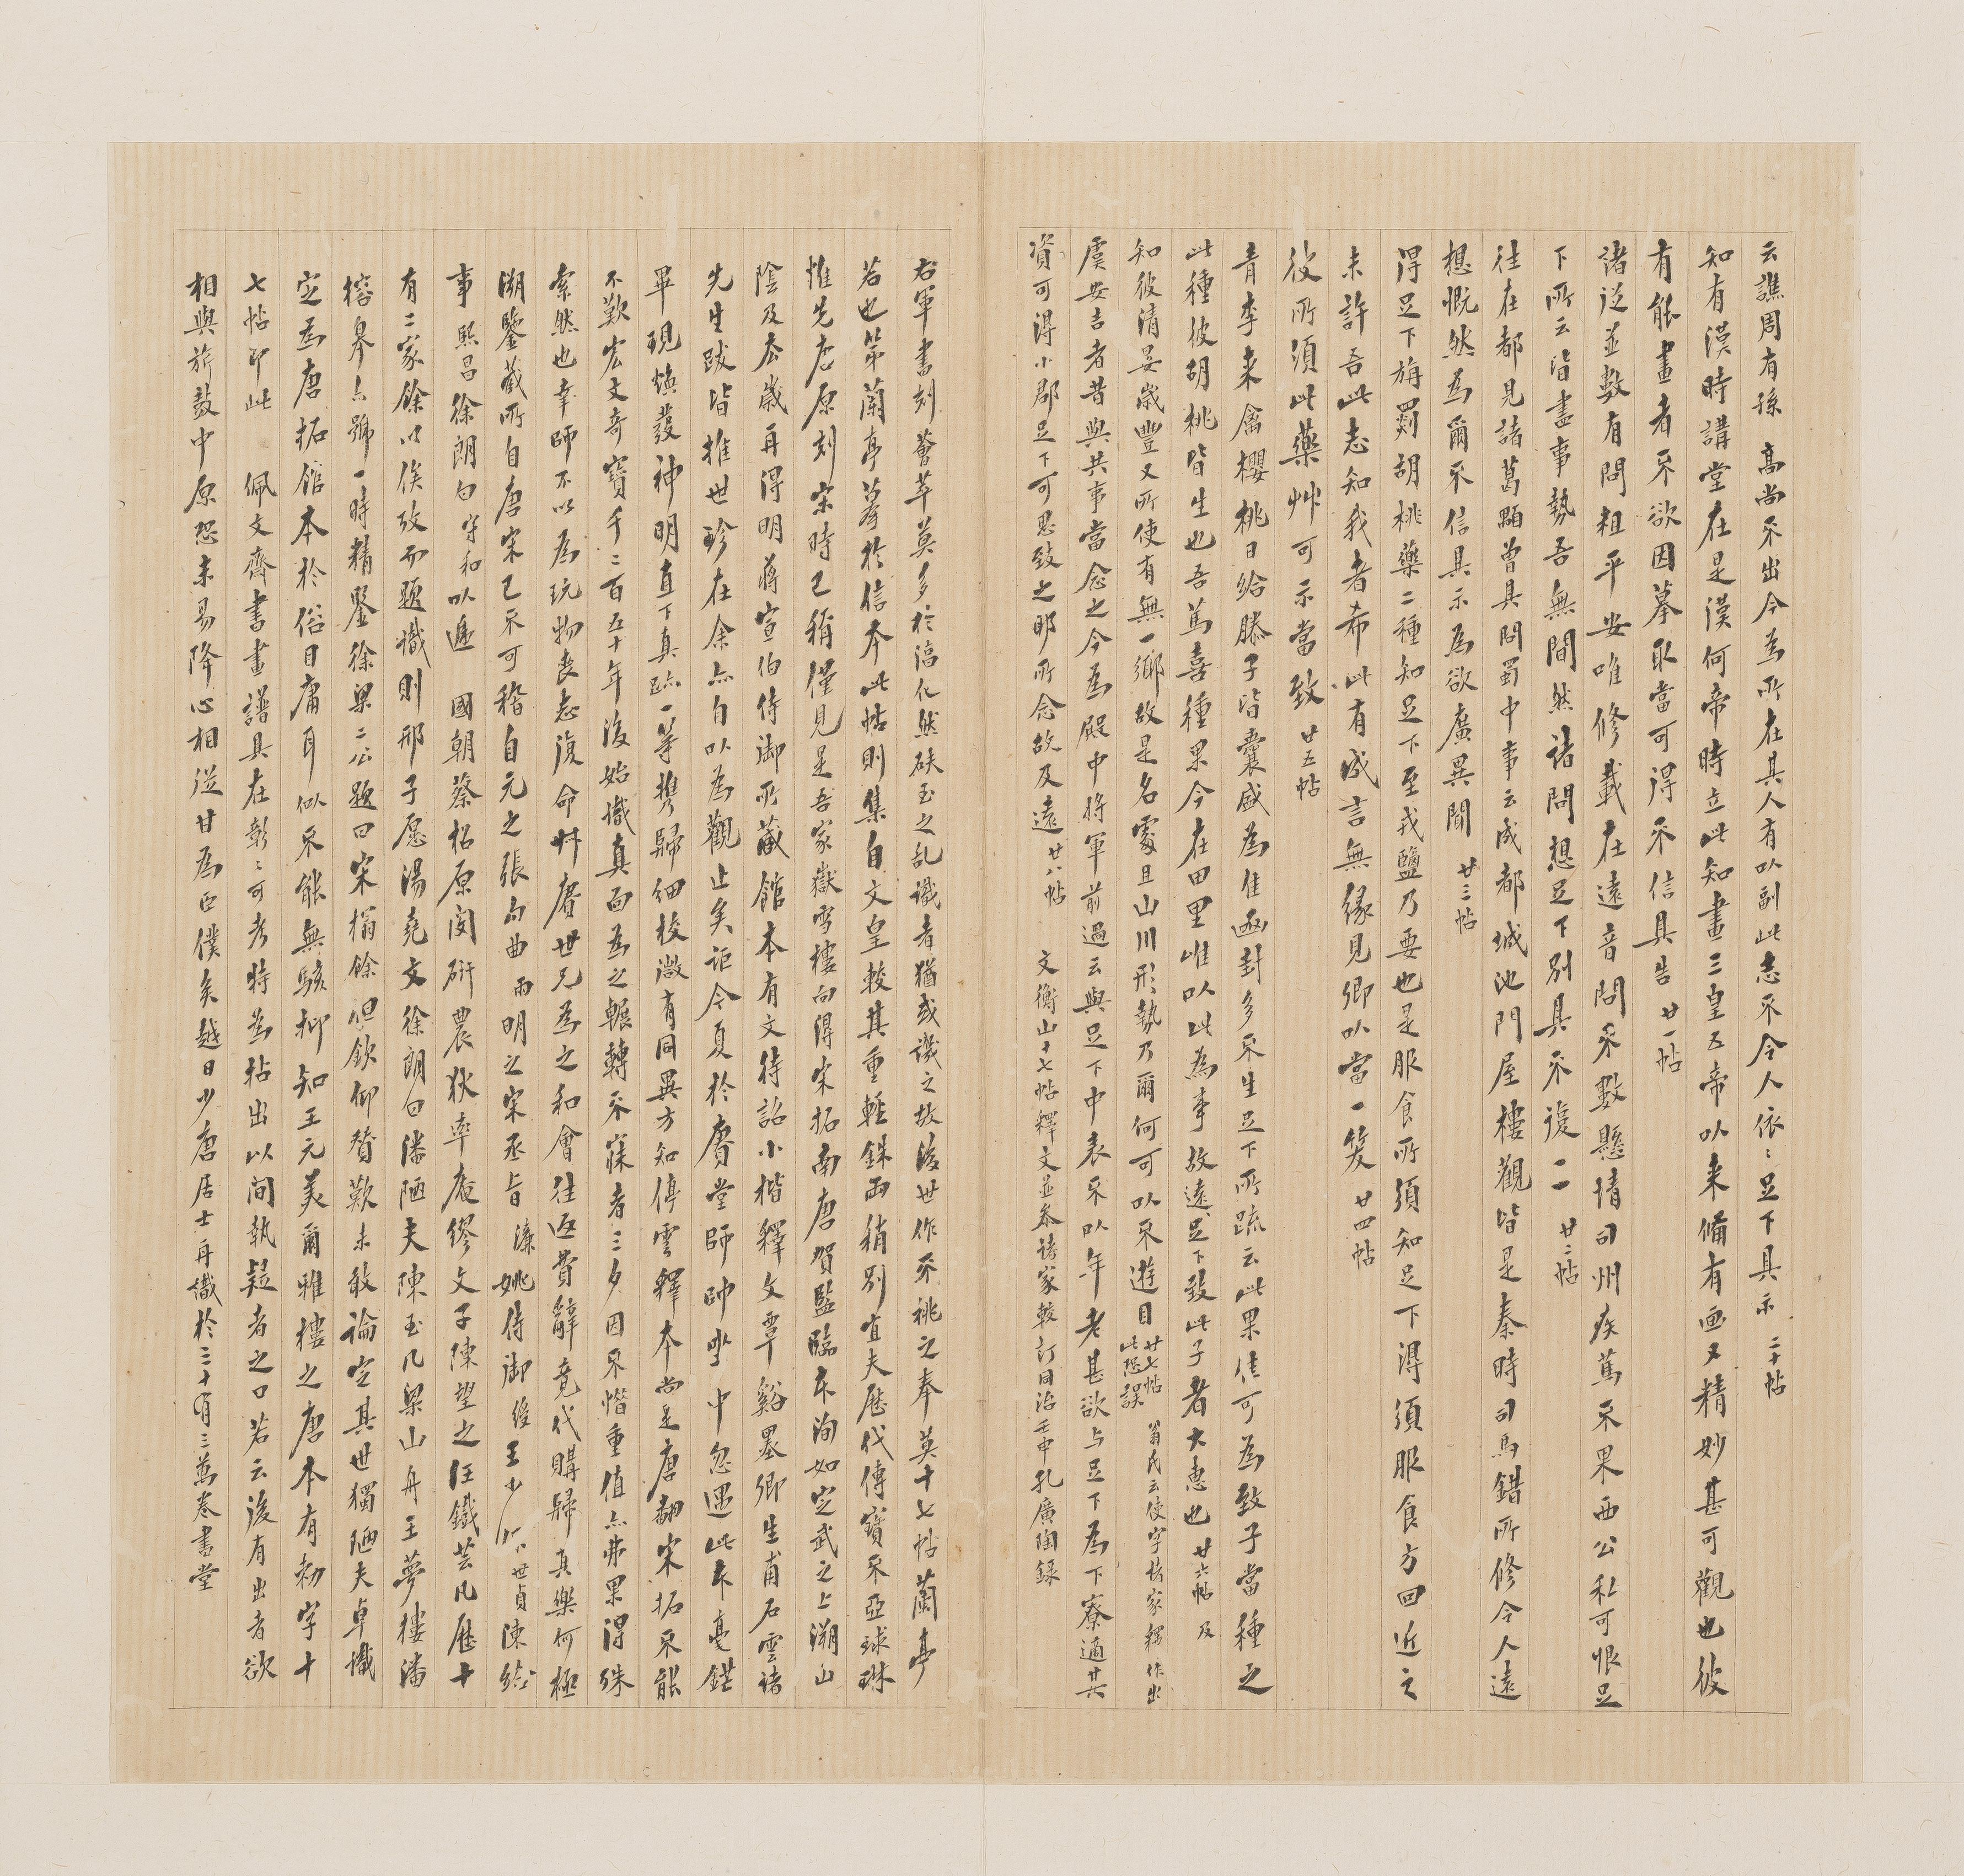 云譙周有孫 高尚不出今為所在其人有以副此志不令人依〻足下具示 二十帖
知有漢時講堂在是漢何帝時立此知畫三皇五帝以来備有画又精妙甚可觀也彼
有能畫者不欲因摹取當可得不信具告 廿一帖
諸從並數有問粗平安唯修載在遠音問不數懸情司州疾篤不果西公私可恨足
下所云皆盡事勢吾無間然諸問想足下別具不復一一 廿二帖
往在都見諸葛顯曾具問蜀中事云成都城池門屋樓觀皆是秦時司馬錯所修令人遠
想慨然為爾不信具示為欲廣異聞 廿三帖
得足下旃罽胡桃藥二種知足下至戎鹽乃要也是服食所須知足下得須服食方回近之
未許吾此志知我者希此有成言無緣見卿以當一笑 廿四帖
彼所須此藥艸可示當致 廿五帖
青李来禽櫻桃日給滕子皆囊盛為佳函封多不生足下所疏云此果佳可為致子當種之
此種彼胡桃皆生也吾篤喜種果今在田里唯以此為事故遠足下致此子者大惠也 廿六帖 及
知彼清晏歲豐又所使有無一鄉故是名處且山川形勢乃爾何可以不遊目 廿七帖 此恐誤 翁氏云使字諸家釋作出
虞安吉者昔與共事當念之今為殿中將軍前過云與足下中表不以年老甚欲与足下為下寮適其
資可得小郡足下可思致之耶所念故及遠 廿八帖 文衡山十七帖釋文並叅諸家較訂同治壬申孔廣陶録
右軍書刻薈萃莫多於淳化然砆玉之乱識者猶或譏之故後世作不祧之奉莫十七帖蘭亭
若也第蘭亭摹於信本此帖則集自文皇較其重輕銖兩稍別宜夫歷代傳寶不亞球琳
惟先唐原刻宋時已稱僅見是吾家嶽雪樓向得宋拓南唐賀監臨本洵如定武之上溯山
陰及本歲再得明蔣宣伯侍御所藏館本有文待詔小楷釋文覃谿墨卿生甫石雲諸
先生跋皆推世珍在余亦自以為觀止矣詎今夏於賡堂師帥坐中忽遇此本毫鋩
畢現煥發神明直下真跡一等携歸細校微有同異方知停雲釋本尚是唐翻宋拓不能
不歎宏文奇寶千二百五十年後始識真面為之輾轉不寐者三夕因不惜重值亦弗果得殊
索然也幸師不以為玩物喪志復命艸賡世兄為之和會往返費辭竟代購歸真樂何極
溯鑒藏所自唐宋已不可稽自元之張句曲雨明之宋丞旨濂姚侍御綬王少川世貞陳給
事熙昌徐朗白守和以遞 國朝蔡松原閔研農狄率庵繆文子陳望之汪鐵芸凡歷十
有二家餘以俟攷而題識則邢子愿湯堯文徐朗白潘陋夫陳玉几梁山舟王夢樓潘
榕皋亦號一時精鑒徐梁二公題曰宋搨餘但欽仰贊歎未敢論定其世獨陋夫卓識
定為唐拓館本於俗目庸耳似不能無駭抑知王元美爾雅樓之唐本有勅字十
七帖即此 佩文齋書畫譜具在彰〻可考特為拈出以間執疑者之口若云後有出者欲
相與旂鼓中原恐未易降心相從甘為臣僕矣越日少唐居士再識於三十有三萬卷書堂